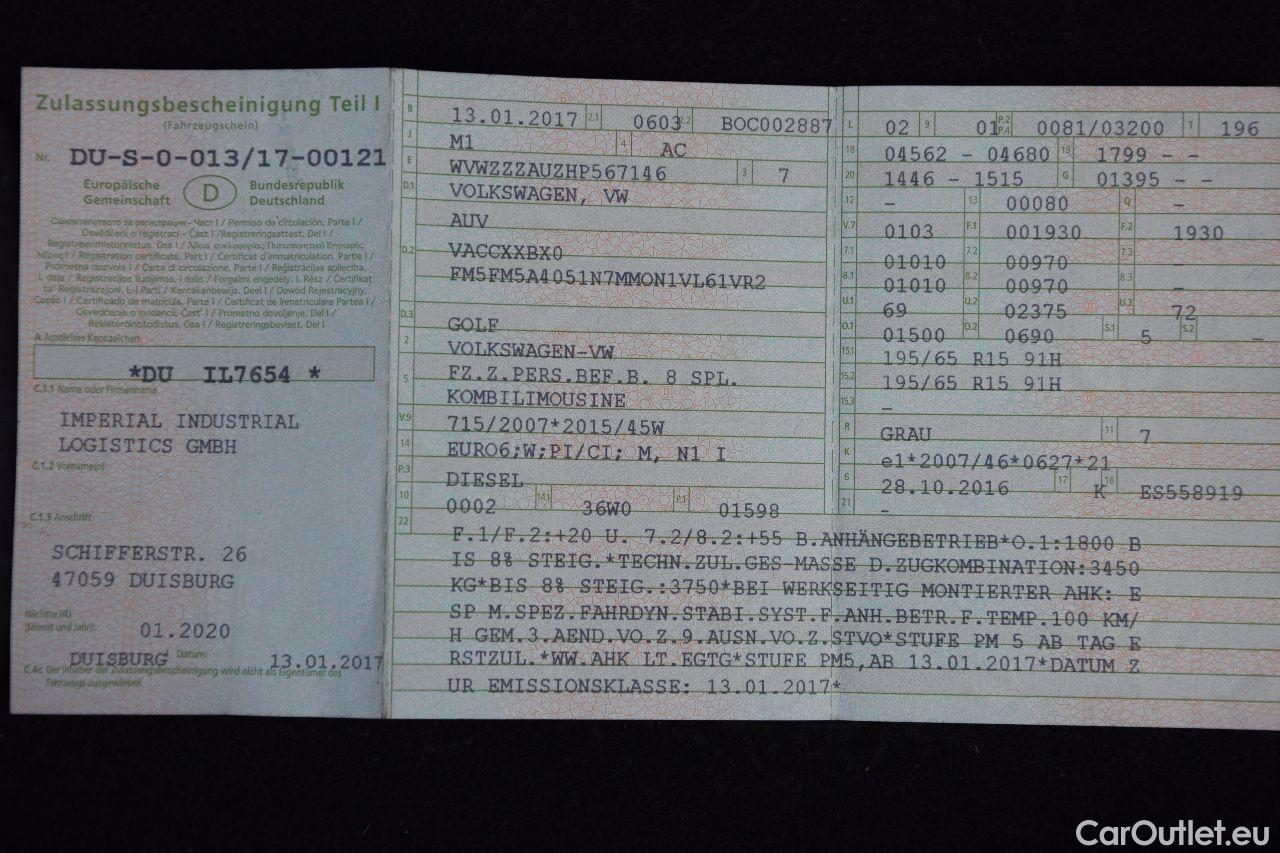 Zulassungsbescheinigung Teil I
(Fahrzeugschein)
Nr. DU-S-0-013/17-00121
Europäische Gemeinschaft D Bundesrepublik Deutschland
Registreerimistunnistus. Osa I /
Registration certificate. Part I / Certificat d'immatriculation. Partie I /
Prometna dozvola I / Carta di circolazione. Parte I / Reģistrācijas apliecība.
I. daļa / Registracijos liudijimas. I dalis / Forgalmi engedély. I. Rész / Ċertifikat
ta' Reġistrazzjoni. L-I Parti / Kentekenbewijs. Deel I / Dowód Rejestracyjny.
Część I / Certificado de matrícula. Parte I / Certificat de înmatriculare Partea I /
Osvedčenie o evidencii. Časť I / Prometno dovoljenje. Del I /
Rekisteröintitodistus. Osa I / Registreringsbeviset. Del I
A Amtliches Kennzeichen
*DU IL7654 *
C.1.1 Name oder Firmenname
IMPERIAL INDUSTRIAL
LOGISTICS GMBH
C.1.2 Vorname(n)
C.1.3 Anschrift
SCHIFFERSTR. 26
47059 DUISBURG
Nächste HU
(Monat und Jahr): 01.2020
DUISBURG Datum: 13.01.2017
C.4c Der Inhaber der Zulassungsbescheinigung wird nicht als Eigentümer des
Fahrzeugs ausgewiesen.
B 13.01.2017 2.1 0603 2.2 BOC002887
J M1 4 AC
E WVWZZZAUZHP567146 3 7
D.1 VOLKSWAGEN, VW
AUV
D.2 VACCXXBX0
FM5FM5A4051N7MMON1VL61VR2
D.3 GOLF
2 VOLKSWAGEN-VW
5 FZ.Z.PERS.BEF.B. 8 SPL.
KOMBILIMOUSINE
V.9 715/2007*2015/45W
14 EURO6;W;PI/CI; M, N1 I
P.3 DIESEL
10 0002 14.1 36W0 P.1 01598
L 02 9 01 P.2 P.4 0081/03200 T 196
18 04562 - 04680 19 1799 - -
20 1446 - 1515 G 01395 - -
12 - 13 00080 Q -
V.7 0103 F.1 001930 F.2 1930
7.1 01010 7.2 00970 7.3 -
8.1 01010 8.2 00970 8.3 -
U.1 69 U.2 02375 U.3 72
O.1 01500 O.2 0690 S.1 5 S.2 -
15.1 195/65 R15 91H
15.2 195/65 R15 91H
15.3 -
R GRAU 11 7
K e1*2007/46*0627*21
6 28.10.2016 17 K 16 ES558919
21 -
22 F.1/F.2:+20 U. 7.2/8.2:+55 B.ANHÄNGEBETRIEB*O.1:1800 B
IS 8% STEIG.*TECHN.ZUL.GES-MASSE D.ZUGKOMBINATION:3450
KG*BIS 8% STEIG.:3750*BEI WERKSEITIG MONTIERTER AHK: E
SP M.SPEZ.FAHRDYN.STABI.SYST.F.ANH.BETR.F.TEMP.100 KM/
H GEM.3.AEND.VO.Z.9.AUSN.VO.Z.STVO*STUFE PM 5 AB TAG E
RSTZUL.*WW.AHK LT.EGTG*STUFE PM5,AB 13.01.2017*DATUM Z
UR EMISSIONSKLASSE: 13.01.2017*
CarOutlet.eu